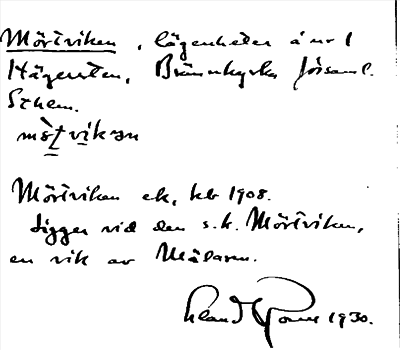 Mörtviken, lägenheter å nr 1
Hägersten, Brännkyrka församl.
Sthlm.
Mörtviken ek, kb 1908.
Ligger vid den s.k. Mörtviken,
en vik av Mälaren.
1930.